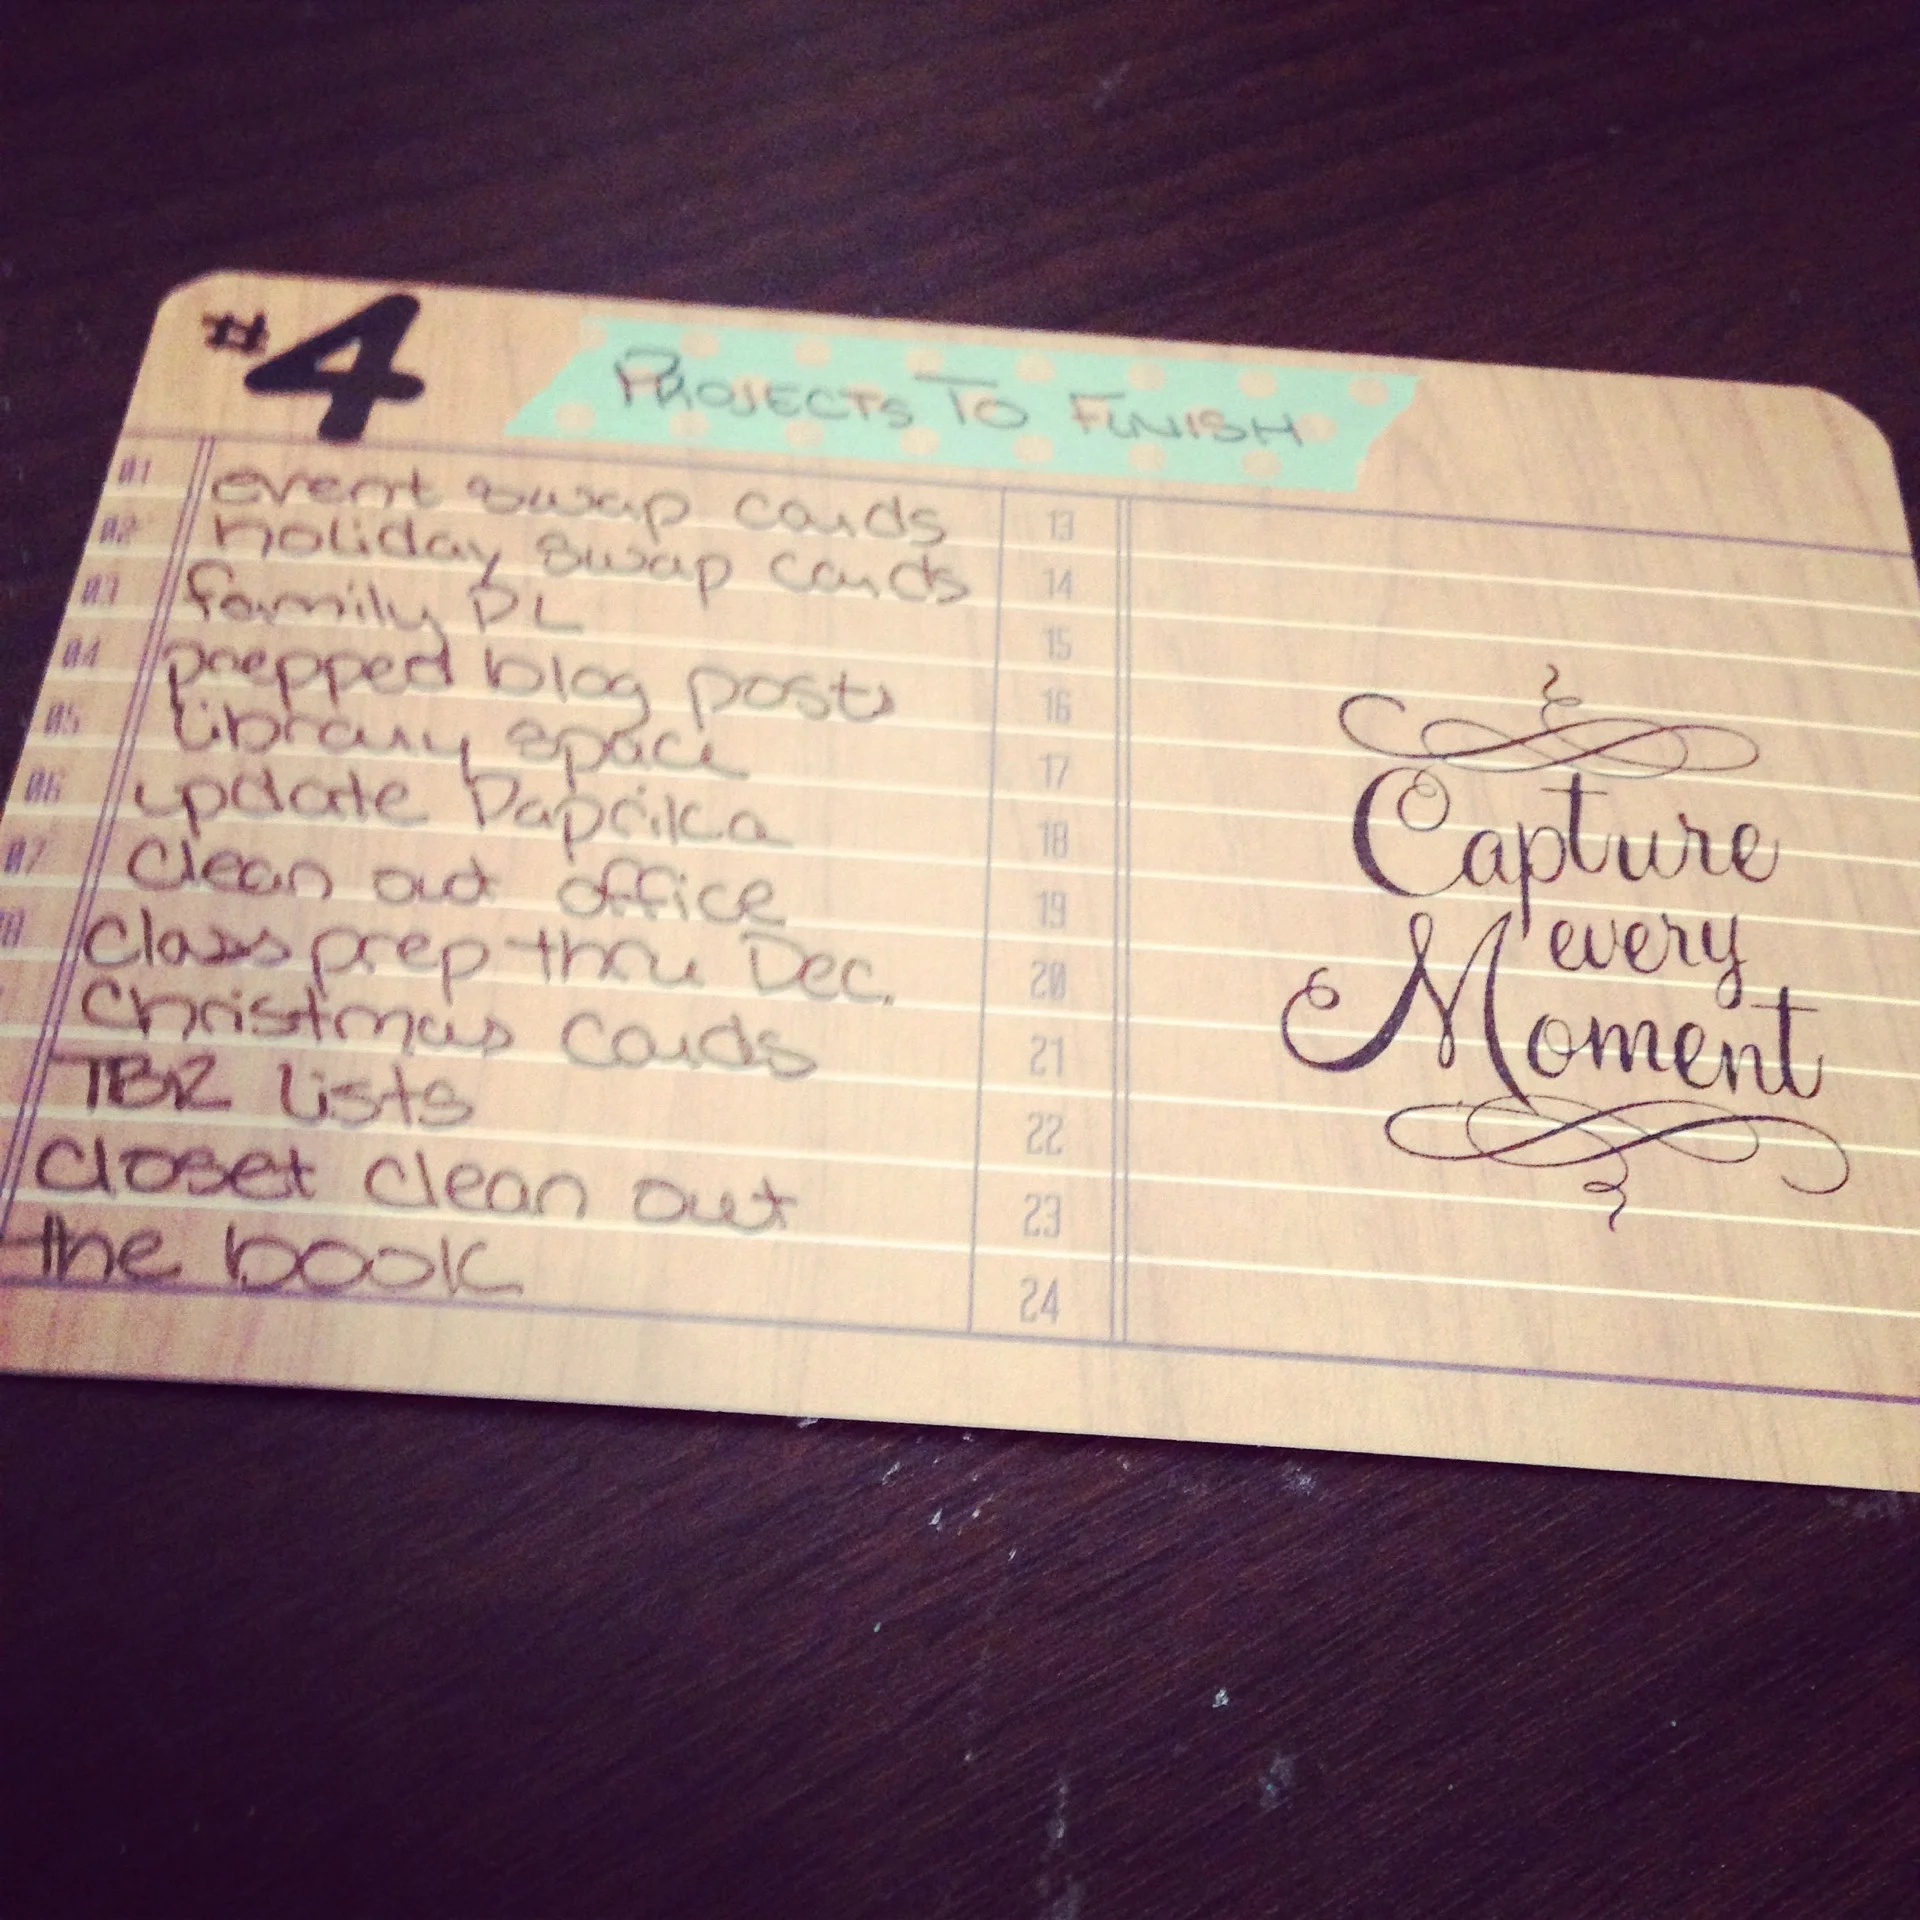 #4 PROJECTS TO FINISH
01 event swap cards
02 holiday swap cards
03 family PL
04 prepped blog posts
05 library space
06 update Paprika
07 clean out office
08 class prep thru Dec.
Christmas cards
TBR Lists
closet clean out
the book
13
14
15
16
17
18
19
20
21
22
23
24
Capture
every
Moment